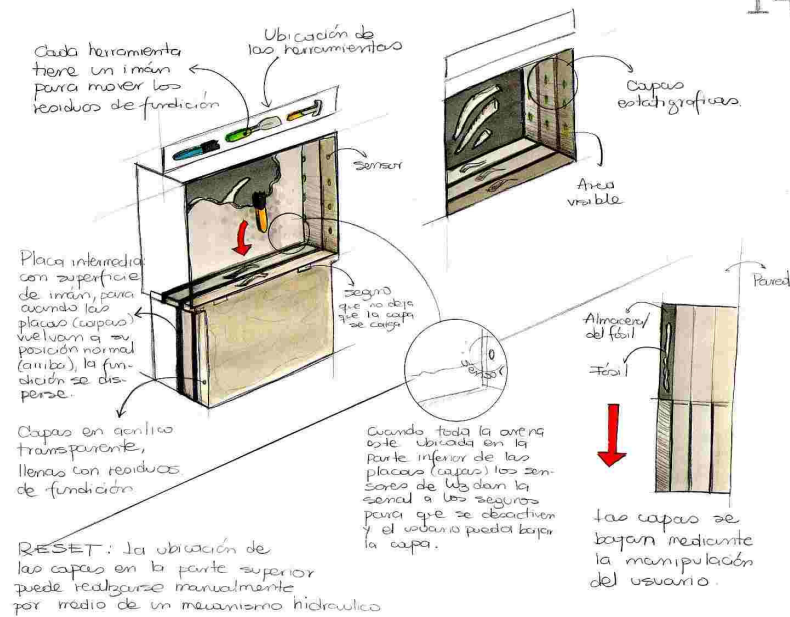 Cada herramienta
tiene un imán
para mover los
residuos de fundición
Ubicación de
las herramientas
sensor
Capas
estatigraficas.
Area
visible
Placa intermedia
con superficie
de imán, para
cuando las
placas (capas)
vuelvan a su
posición normal
(arriba), la fun-
dición se dis-
perse.
seguro
que no deja
que la capa
se caiga
Capas en acrilico
transparente,
llenas con residuos
de fundición
sensor
Cuando toda la arena
este ubicada en la
parte inferior de las
placas (capas) los sen-
sores de luz dan la
señal a los seguros
para que se desactiven
y el usuario pueda bajar
la capa.
Pared
Almacena/
del fósil
Fósil
Las capas se
bajan mediante
la manipulación
del usuario.
RESET: La ubicación de
las capas en la parte superior
puede realizarse manualmente
por medio de un mecanismo hidraulico